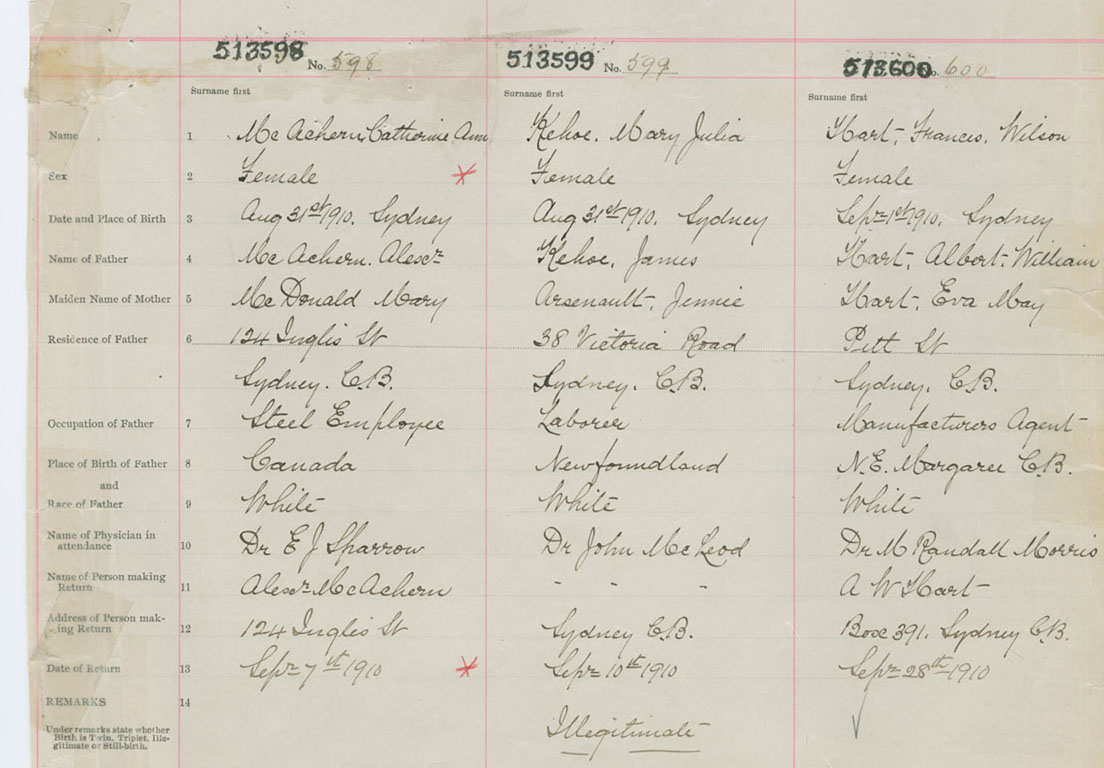 513598 No. 598 513599 No. 599 513600 No. 600
Surname first Surname first Surname first
Name 1 Mc Achern, Catherine Ann Kehoe. Mary Julia Hart, Francis. Wilson
Sex 2 Female Female Female
Date and Place of Birth 3 Aug 31st 1910. Sydney Aug 31st 1910. Sydney Sepr 1st 1910. Sydney
Name of Father 4 Mc Achern. Alexr Kehoe, James Hart, Albert. William
Maiden Name of Mother 5 McDonald Mary Arsenault, Jennie Hart, Eva May
Residence of Father 6 124 Inglis St 38 Victoria Road Pitt St
Sydney. C.B. Sydney. C.B. Sydney. C.B.
Occupation of Father 7 Steel Employee Laborer Manufacturers Agent
Place of Birth of Father 8 Canada Newfoundland N.E. Margaree C.B.
and
Race of Father 9 White White White
Name of Physician in
attendance 10 Dr E J Sparrow Dr John McLeod Dr M Randall Morris
Name of Person making
Return 11 Alexr McAchern - - - A W Hart
Address of Person mak-
ing Return 12 124 Inglis St Sydney C.B. Box 391. Sydney C.B.
Date of Return 13 Sepr 7th 1910 Sepr 10th 1910 Sepr 28th 1910
REMARKS 14
Under remarks state whether
Birth is Twin, Triplet, Ille-
gitimate or Still-birth.
Illegitimate